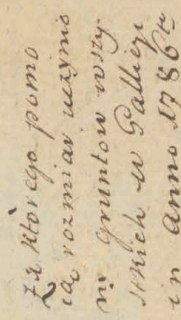 Za którego pomo
cą rozmiar uczynio
ny gruntow wszy
stkich w Galliçii
in Anno 1786to